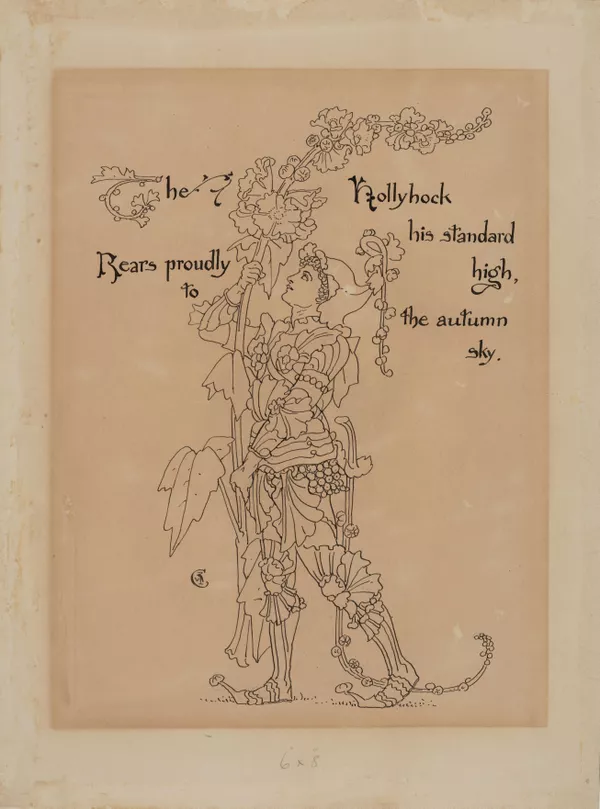 The Hollyhock
his standard
high,
Rears proudly
to
the autumn
sky.
6 x 8